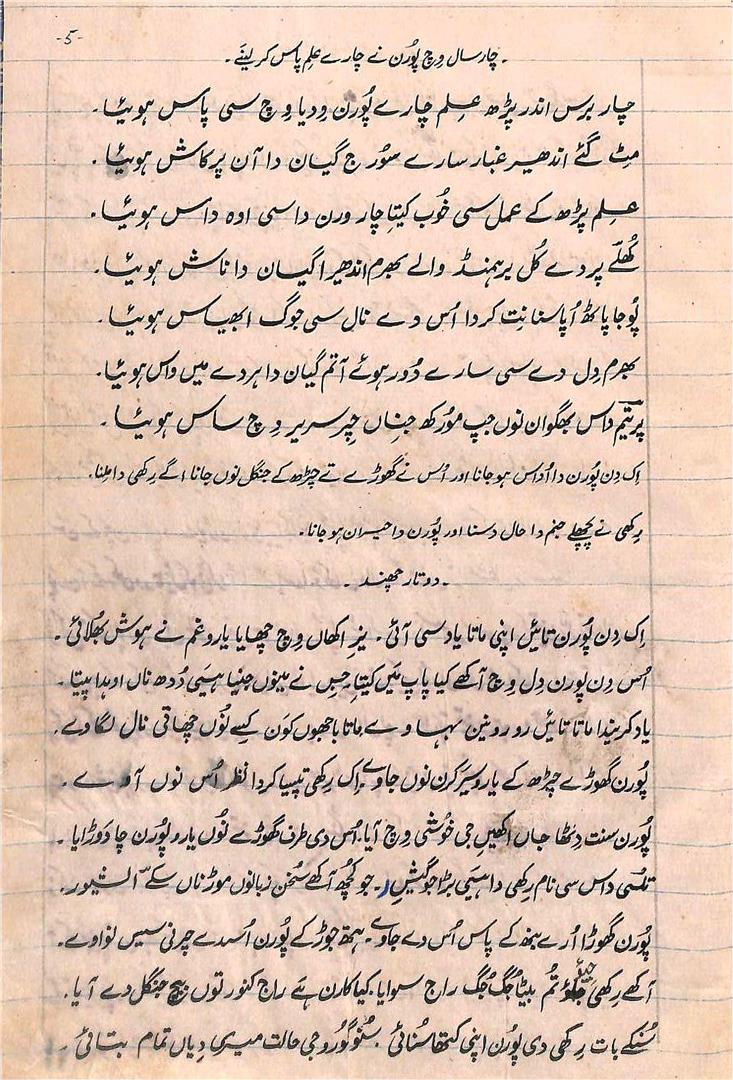 -5-
۔ چار سال وِچ پُورن نے چارے عِلم پاس کر لینے ۔
چار برس اندر پڑھ عِلم چارے پُورن وِدیا وِچ سی پاس ہوئیا۔
مِٹ گئے اندھیر غبار سارے سُورج گیان دا آن پرکاش ہوئیا ۔
عِلم پڑھ کے عمل سی خُوب کیتا چار ورن دا سی اوہ داس ہوئیا۔
کُھلے پردے کُل برہمنڈ والے بھرم اندھیرا گیان دا ناش ہوئیا۔
پُوجا پاٹھ اُپاسنا نِت کردا اُس دے نال سی جوگ ابھیاس ہوئیا۔
بھرم دِل دے سی سارے دُور ہوئے آتم گیان دا ہردے میں واس ہوئیا۔
پریتم داس بھگوان نوں جپ مُورکھ جِناں چِر سریر وِچ ساس ہوئیا ۔
اِک دِن پُورن دا اُداس ہو جانا اور اُس نے گھوڑے تے چڑھ کے جنگل نوں جانا اگے رِکھی دا مِلنا۔
رِکھی نے پچھلے جنم دا حال دسنا اور پُورن دا حیران ہو جانا۔
۔ دوتار چھند ۔
اِک دِن پُورن تائیں اپنی ماتا یاد سی آئی ۔ نِیر اکھاں وِچ چھایا یارو غم نے ہوش بُھلائی ۔
اُس دِن پورن دِل وِچ آکھے کیا پاپ مَیں کیتا۔ جِس نے مینوں جنیا ہیسی دُدھ ناں اوہدا پیتا ۔
یاد کریندا ماتا تائیں رو رو نین بہاوے۔ ماتا باجھوں کون کسے نُوں چھاتی نال لگاوے۔
پُورن گھوڑے چڑھ کے یارو سیر کرن نوں جاوے۔ اِک رِکھی تپسیا کردا نظر اُس نوں آوے ۔
پُورن سنت ڈِٹھا جاں اکھیں جی خُوشی وِچ آیا۔ اُس دی طرف گھوڑے نُوں یارو پُورن چا دوڑایا ۔
تلسی داس سی نام رِکھی دا ہیسی بڑا جوگیشر۔ جو کُچھ آکھے سُخن زبانوں موڑ ناں سکے ایشور۔
پُورن گھوڑا اُرے بنھ کے پاس اُس دے جاوے۔ ہتھ جوڑ کے پُورن اُسدے چرنی سیس نواوے۔
آکھے رِکھی جیئو تُم بیٹا جُگ جُگ راج سوایا۔ کیا کارن ہَے راج کنور توں بیچ جنگل دے آیا۔
سُنکے بات رِکھی دی پُورن اپنی کتھا سُنائی ۔ سُنو گورو جی حالت میری دِیاں تمام بتائی ۔